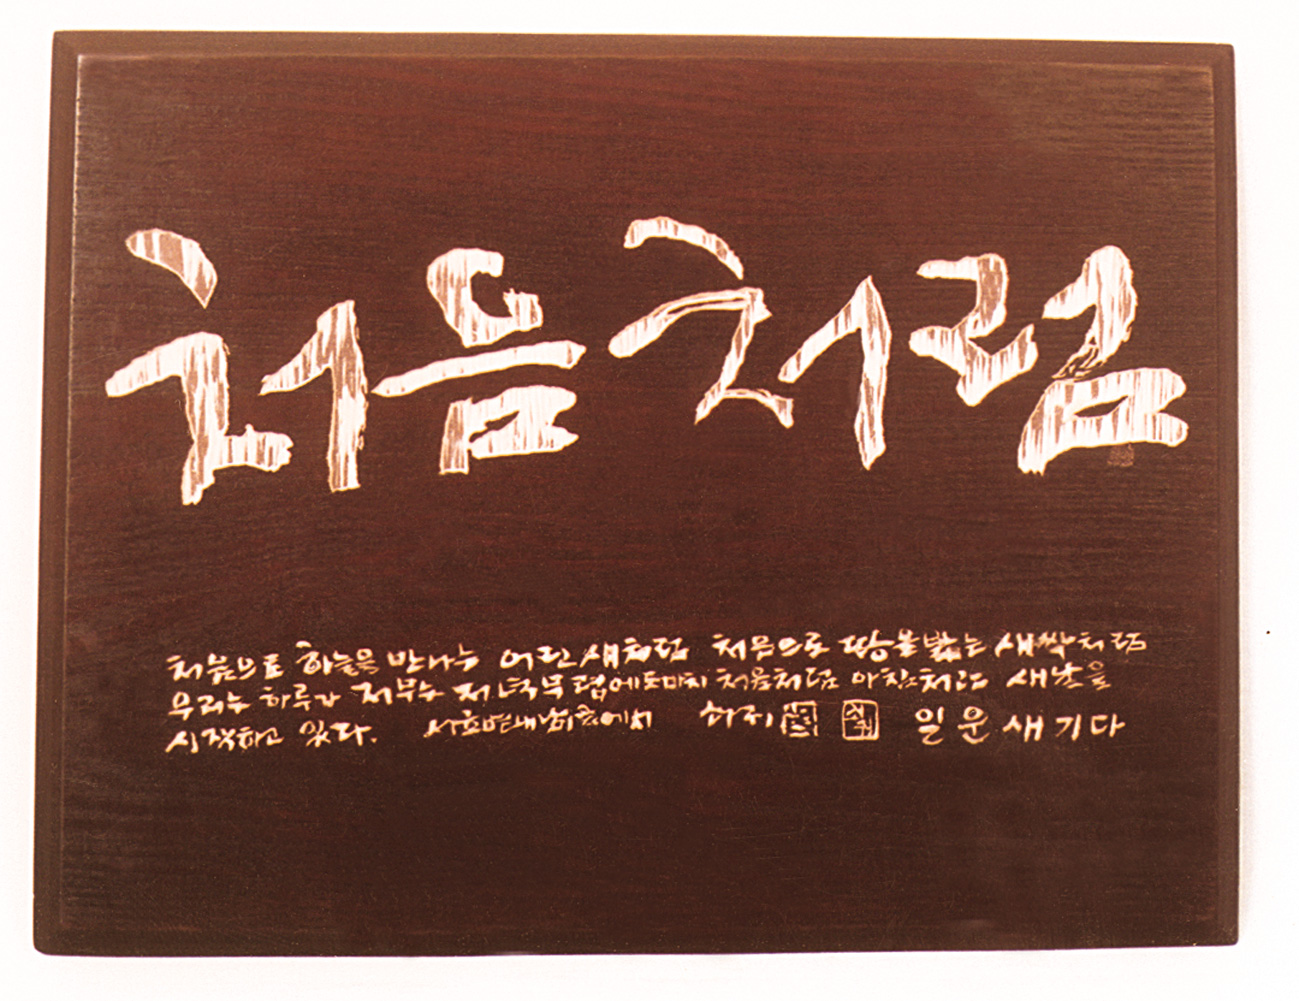 처음처럼
처음으로 하늘을 만나는 어린 새처럼 처음으로 땅을 밟는 새싹처럼
우리는 하루가 저무는 저녁무렵에도 마치 처음처럼 아침처럼 새날을
시작하고 있다. 일운 새기다